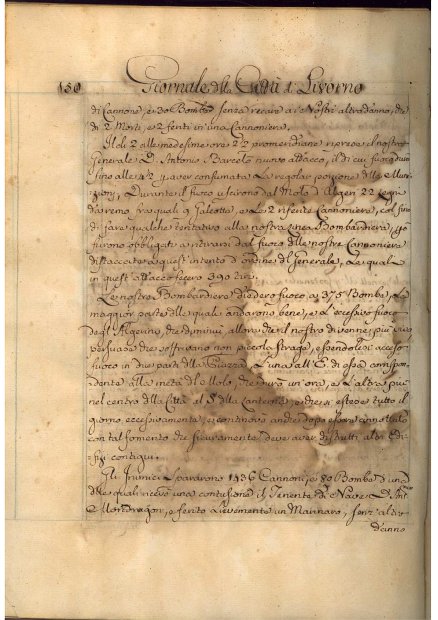 150 Giornale della Città di Livorno
di Cannone, e 30 Bombe senza recare a i Nostri altro danno, che
di 2 Morti, e 2 feriti in una Cannoniera.
Il dì 2 alle medesime ore 2½ pomeridiane riprese il nostro
Generale D. Antonio Barcelo nuovo attacco, il di cui fuoco durò
fino alle 4½ p aver consumata la regolar porzione della Mu-
nizioni. Durante il fuoco uscirono dal Molo d'Algeri 22 legni
da remo, fra quali 9 Galeotte, e le 2 riferite Cannoniere, col fine
di fare qualche tentativo alla nostra linea Bombardiera, 
furono obbligati a ritirarsi dal fuoco delle nostre Cannoniere
distaccate a quest'intento d'ordine del Generale, le quali
in quest'attacco fecero 390 tiri.
Le nostre Bombardiere diedero fuoco a 375 Bombe, la
maggior parte delle quali andarono bene, e al eccessivo fuoco
degl'Algerini, che diminuì allorchè il nostro divenne più vivo
persuade che soffrivano non piccola strage, essendosi acceso
fuoco in due parti della Piazza. L'una all'E. di essa corrispon-
dente alla metà del Molo, che durò un'ora, e l'altra più
nel centro della Città al S. della Lanterna, che si estese tutto il
giorno eccessivamente, e continuò anche dopo essere
con tal fomento che sicuramente deve aver distrutti altri Edi-
fizi contigui.
Gli Inimici spararono 1436 Cannoni, e 80 Bombe d'una
delle quali ricevè una contusione il Tenente di Nave D. Ant.
Mondragon, e ferito lievemente un Marinaro, senz'altro
danno